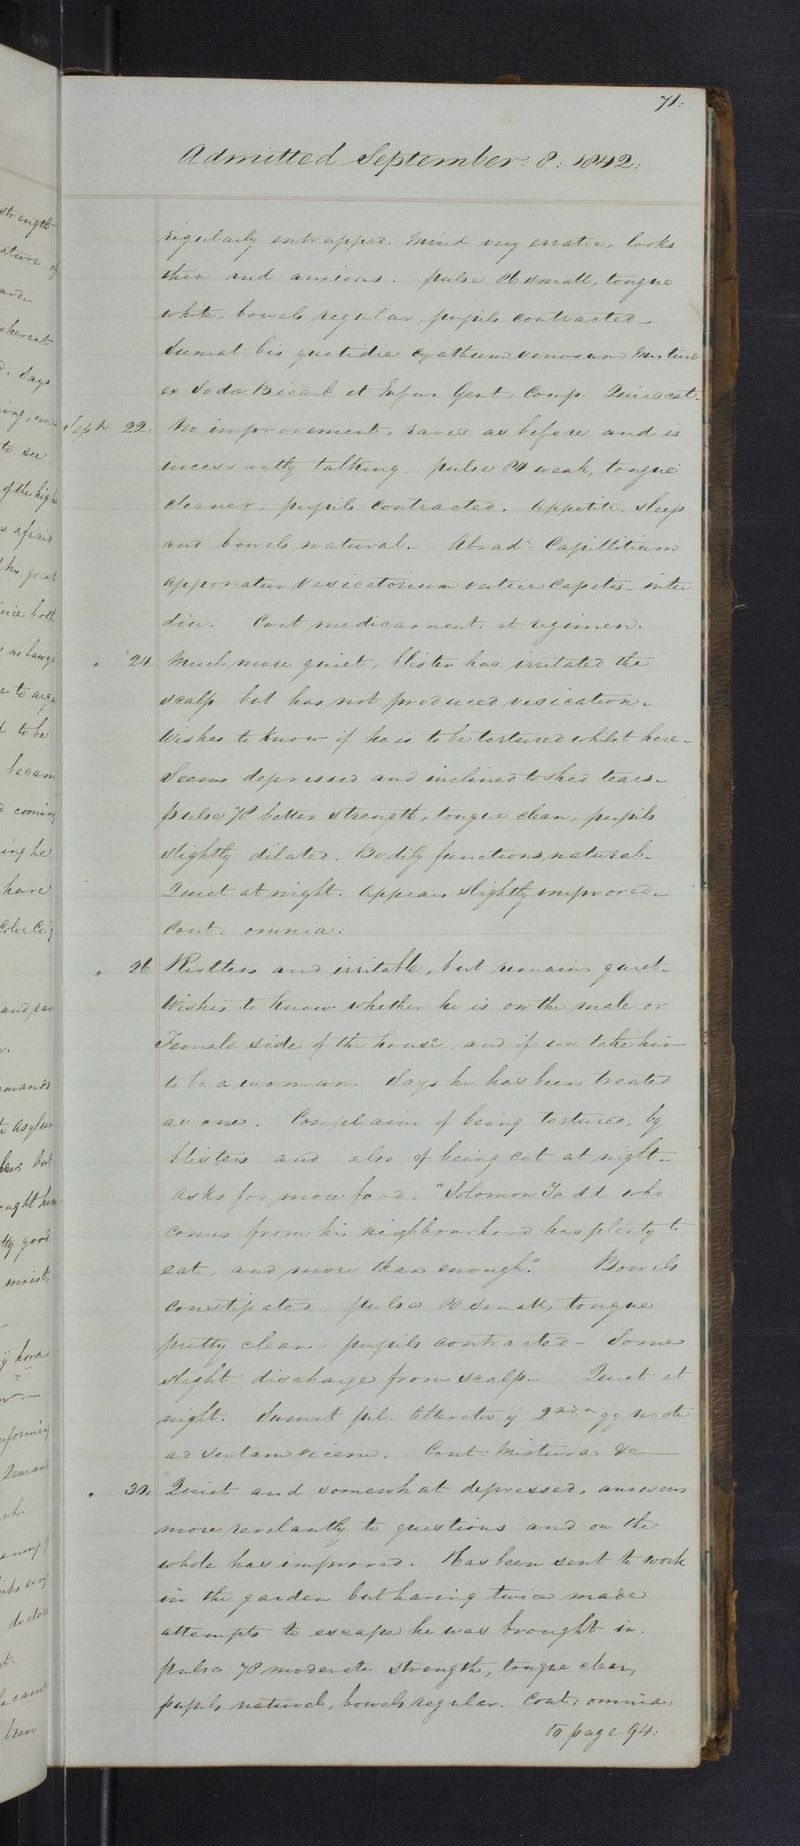 71.
Admitted September: 8: 1842:
regularly entrapped. Mind very erratic, looks
thin and anxious. pulse small, tongue
white, bowels regular, pupils contracted.
Sumat bis quotidie cyathum vinosum Mistura
ex Sodae Bicarb et Infus. Gent: Comp. Quiescat.
Sept 22. No improvement. raves as before and is
incessantly talking. pulse 84 weak, tongue
cleaner, pupils contracted. Appetite, sleep
and bowels natural. Abrad: Capillitium
apponatur Vesicatorium vertice capitis inter
diu. Cont medicament: et regimen.
" 24. Much more quiet, blister has irritated the
scalp but has not produced vesication.
Wishes to know if he is to be tortured whilst here.
Seems depressed and inclined to shed tears.
pulse 78 better strength, tongue clean, pupils
slightly dilated. Bodily functions natural.
Quiet at night. Appears slightly improved.
Cont: omnia:
" 26 Restless and irritable, but remains quiet.
Wishes to know whether he is on the male or
Female side of the house, and if we take him
to be a woman. Says he has been treated
as one. Complains of being tortured, by
blisters and also of being cut at night.
Asks for more food. "Solomon Todd who
comes from his neighbourhood has plenty to
eat, and more than enough." Bowels
constipated, pulse small, tongue
pretty clean. pupils contracted. Some
slight discharge from scalp. Quiet at
night. Sumat pil. ij 2nda qq nocte
ad vicem. Cont: Mistura &c
" 30. Quiet and somewhat depressed, answers
more to questions and on the
whole has improved. Has been sent to work
in the garden but having twice made
attempts to escape he was brought in.
pulse 78 moderate strength, tongue clean,
pupils natural, bowels regular. Cont: omnia:
to page 94:
strength
ature of
herent
. Says
to see
of the high
s afraid
his great
ince both
no lawye
to be
becam
coming
ing he
have
and pa
emands
Asylum
but
ught him
tty good
moist
Deman
doctor
been